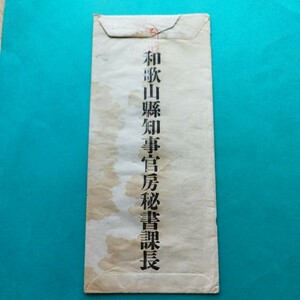 和歌山縣知事官房秘書課長